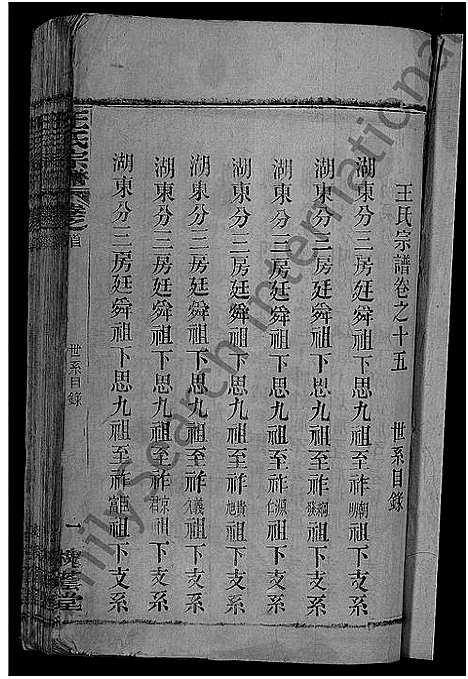 王氏宗譜卷之十五　世系目錄
湖東分三房廷舜祖下思九祖至祚朝明祖下支系
湖東分三房廷舜祖下思九祖至祚綱祖下支系
湖東分三房廷舜祖下思九祖至祚源仁祖下支系
湖東分三房廷舜祖下思九祖至祚貴祖下支系
湖東分三房廷舜祖下思九祖至祚義祖下支系
湖東分三房廷舜祖下思九祖至祚京君祖下支系
湖東分三房廷舜祖下思九祖至祚臣富祖下支系
王氏宗譜卷之首
世系目錄
一
槐蔭堂
Family Search International